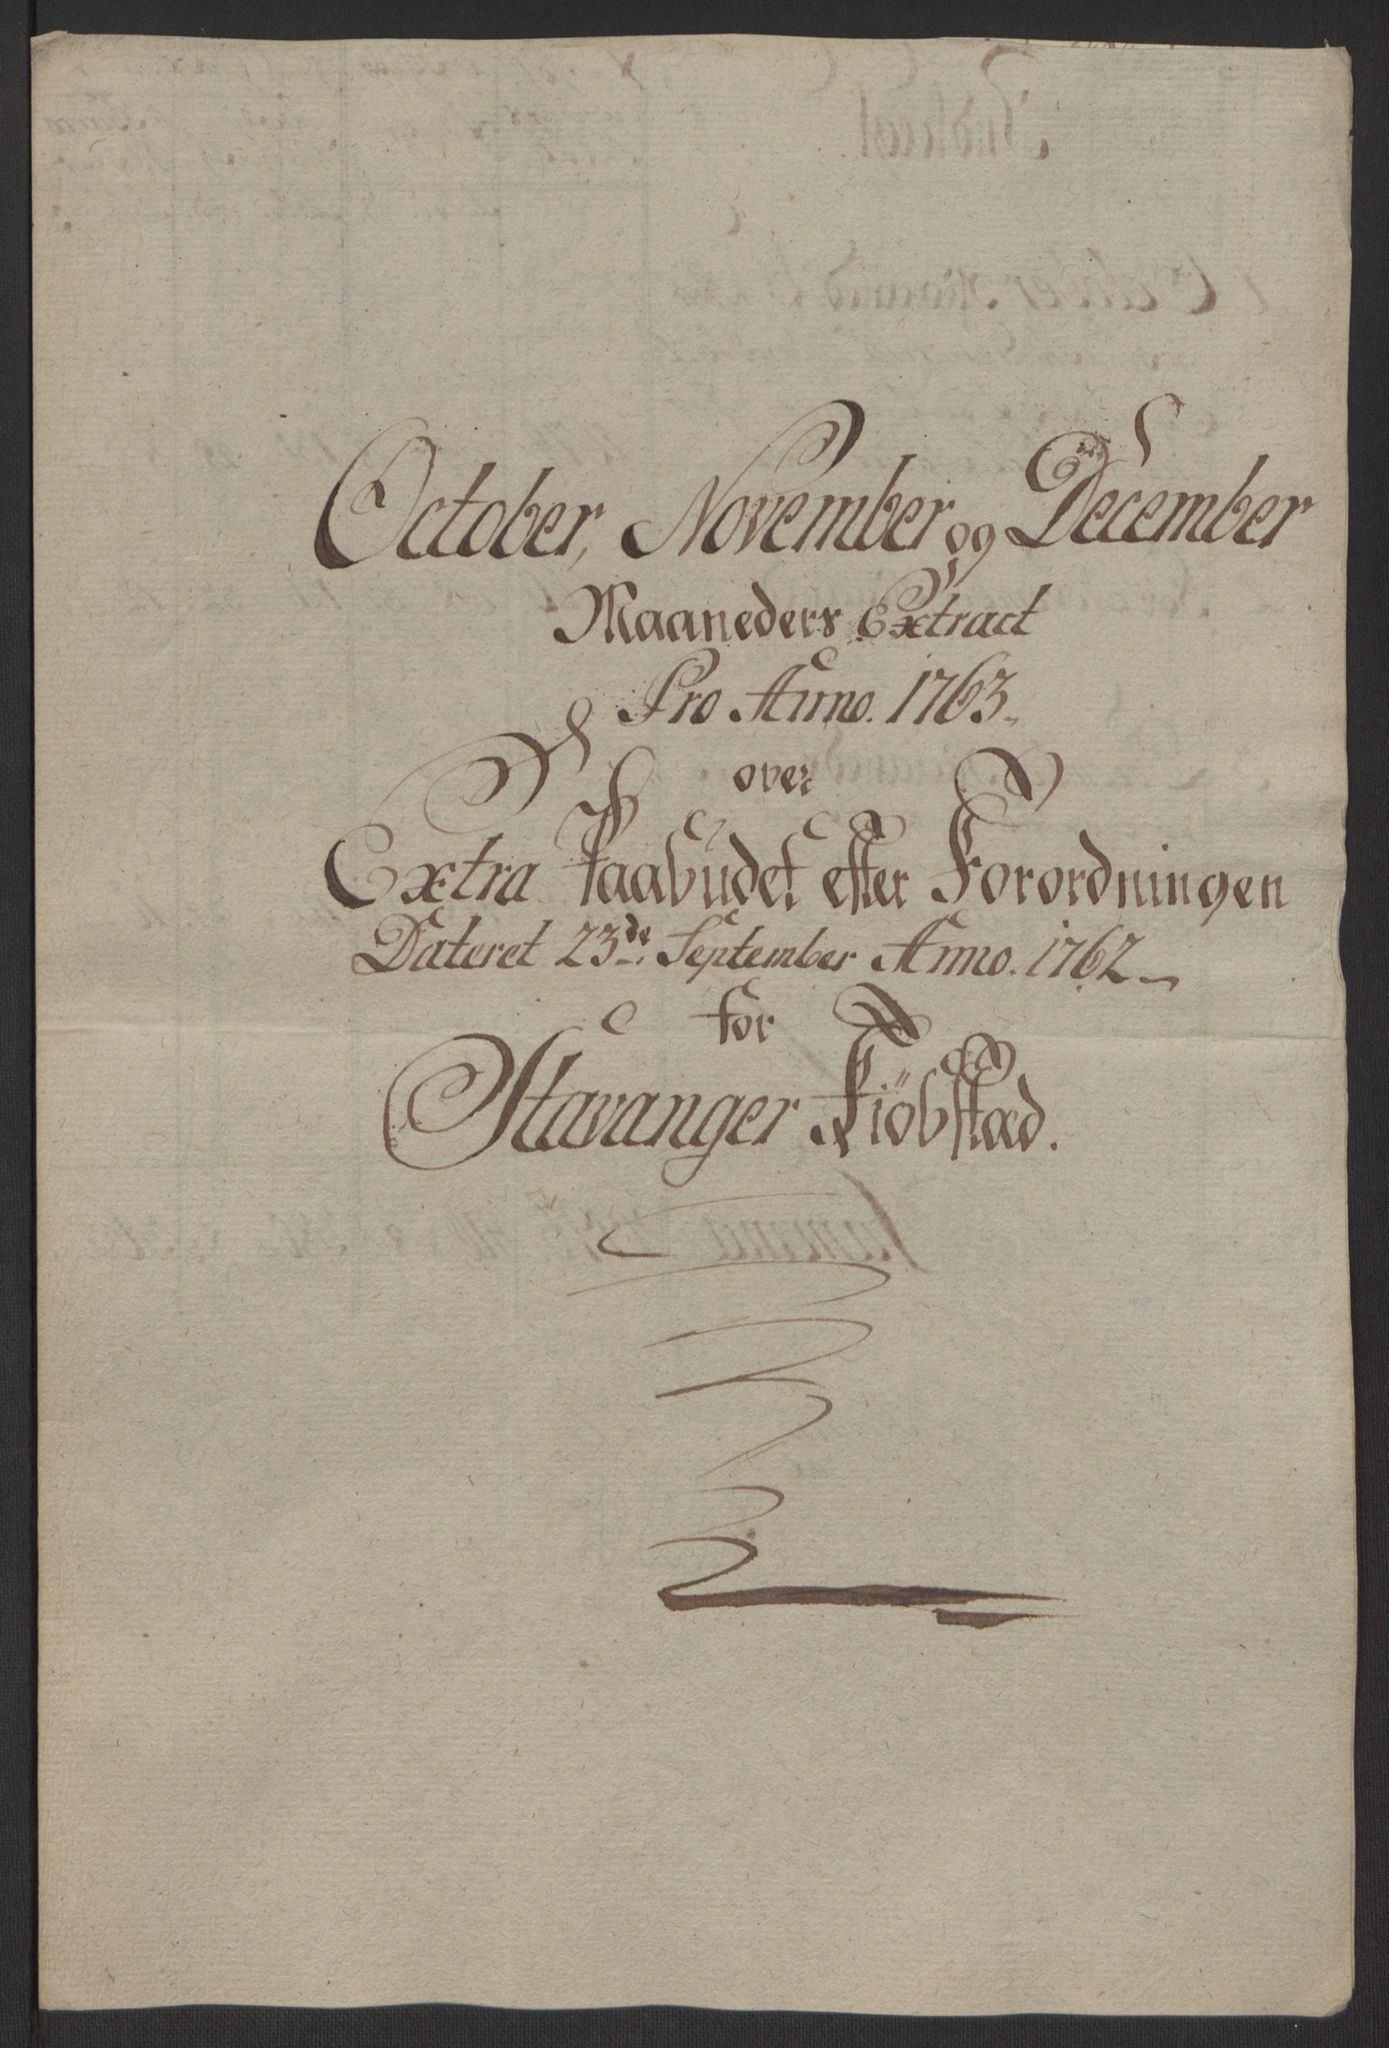 October, November og December
Maaneders Extract
Pro Anno. 1763.
over
Extra Paabudet efter Forordningen
Dateret 23de September Anno. 1762
for
Stavanger Kiöbstad.